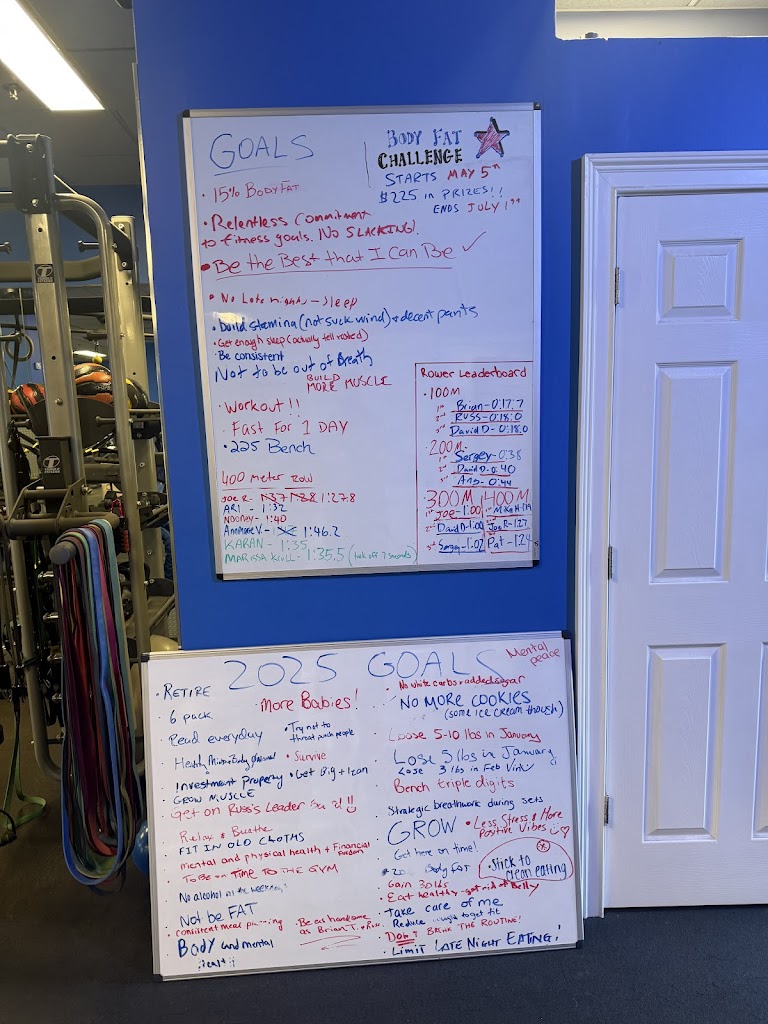 GOALS
BODY FAT
CHALLENGE
STARTS MAY 5th
$225 in PRIZES!!
ENDS JULY 1st
• 15% BODY FAT
• Relentless Commitment
to fitness goals. NO SLACKING!
• Be the Best that I Can Be ✓
• No Late nights - sleep
• Build stamina (not suck wind) + decent pants
• Get enough sleep (actually feel rested)
• Be consistent
Not to be out of Breath
BUILD
MORE MUSCLE
• Workout!!
• Fast For 1 DAY
• 225 Bench
400 meter row
Joe R- 1:27.8
ARI - 1:32
NOONEY - 1:40
Annmarie V- 1:46.2
KARAN - 1:35
MARISSA KRULL- 1:35.5 (took off 7 seconds)
Rower Leaderboard
• 100M
1st Brian-0:17.7
2nd RUSS-0:18.0
3rd David D-0:18.0
200M-
1st Sergey-0:38
2nd David D-0:40
3rd Ang-0:44
300M
1st Joe-1:00
2nd David D-1:00
3rd Sergey-1:02
400M
1st Mike H
Joe R-1:27
Pat-1:24
2025 GOALS
Mental
peace
• RETIRE
More Babies!
• 6 pack
Read everyday
• Try not to
throat punch people
Healthy Mind + Body
• Survive
Investment Property
• Get Big + Lean
GROW MUSCLE
Get on Russ's Leader !!
Relax & Breathe
FIT IN OLD CLOTHS
mental and physical health + Financial
Freedom
TO BE on TIME TO THE GYM
No alcohol in the weekday!
Not be FAT
• consistent meal planning
• Be as handsome
as Brian T. + Russ
Body and mental
health
• No white carbs + added sugar
NO MORE COOKIES
(some ice cream though)
Loose 5-10 lbs in January
Lose 5 lbs in January
Lose 3 lbs in Feb
Bench triple digits
Strategic breathwork during sets
GROW
• Less Stress & More
Positive Vibes
Get here on time!
• Stick to
clean eating
Body FAT
Gain 30 lbs
• Eat healthy - get rid of Belly
• take care of me
Reduce weight to get fit
• DON'T BREAK THE ROUTINE!
• LIMIT LATE NIGHT EATING!